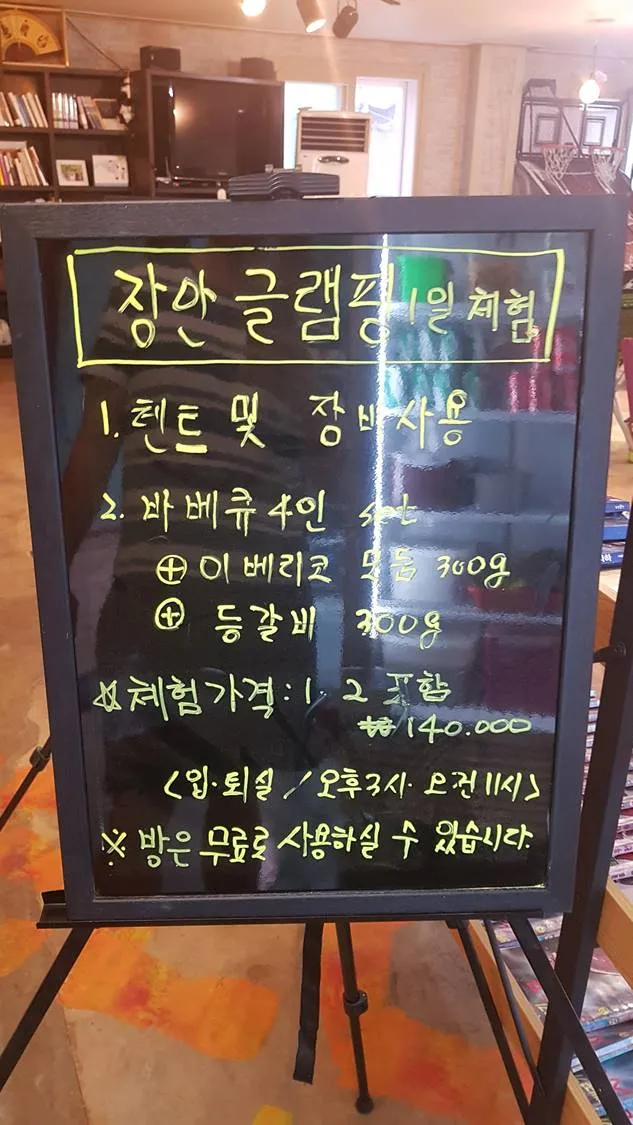 장안 글램핑 1일 체험
1. 텐트 및 장비사용
2. 바베큐 4인
⊕ 이베리코 모듬 300g
⊕ 등갈비 300g
☆체험가격: 1. 2 포함
₩140.000
<입·퇴실 / 오후3시· 오전11시>
※ 방은 무료로 사용하실 수 있습니다.